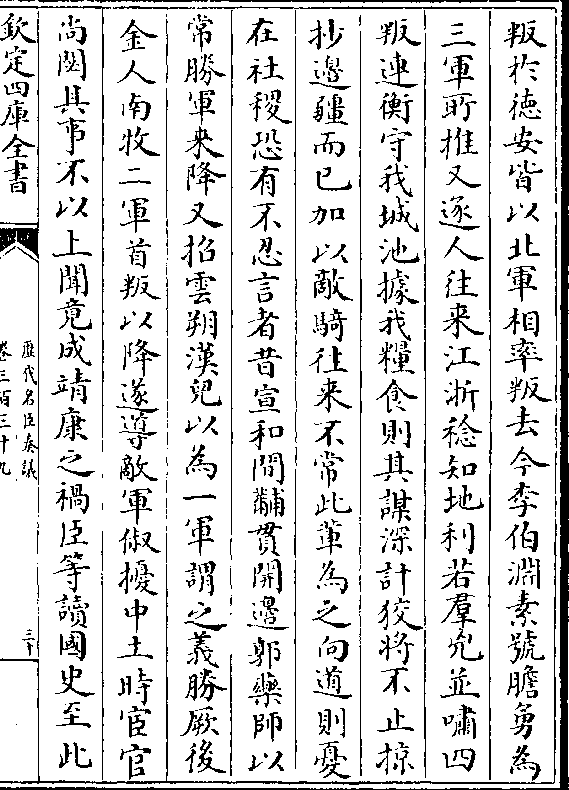 叛扵徳安皆以北軍相率叛去今李伯淵素號膽勇為
三軍所推又遂人往来江浙稔知地利若羣兇並嘯四
叛連衡守我城池據我糧食則其謀深計狡將不止掠
抄邊疆而已加以敵騎往来不常此軰為之向道則憂
在社稷恐有不忍言者昔宣和間黼貫開邊郭藥師以
常勝軍来降又招雲朔漢兒以為一軍謂之義勝厥後
金人南牧二軍首叛以降遂導敵軍俶擾中土時宦官
尚閟其事不以上聞竟成靖康之禍臣等讀國史至此
欽定四庫全書
歴代名臣奏議
卷三百三十九
三十